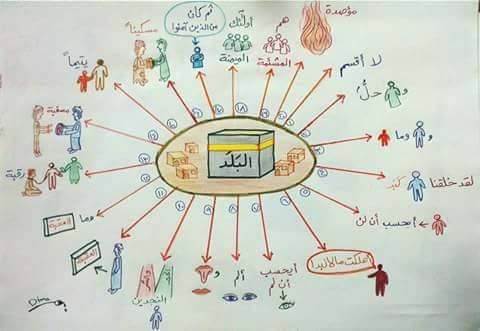 البَلَد
لا أقسم
و حلٌّ
و وما
لقد خلقنا كبد
أيحسب أن لن
أهلكت مالا لبدا
أيحسب
أن لم
ألم
و
النجدين
العقبة
وما العقبة
رقبة
مسغبة
يتيماً
مسكيناً
ثم كان
من الذين آمنوا
أولئك
الميمنة
هم
المشئمة
مؤصدة